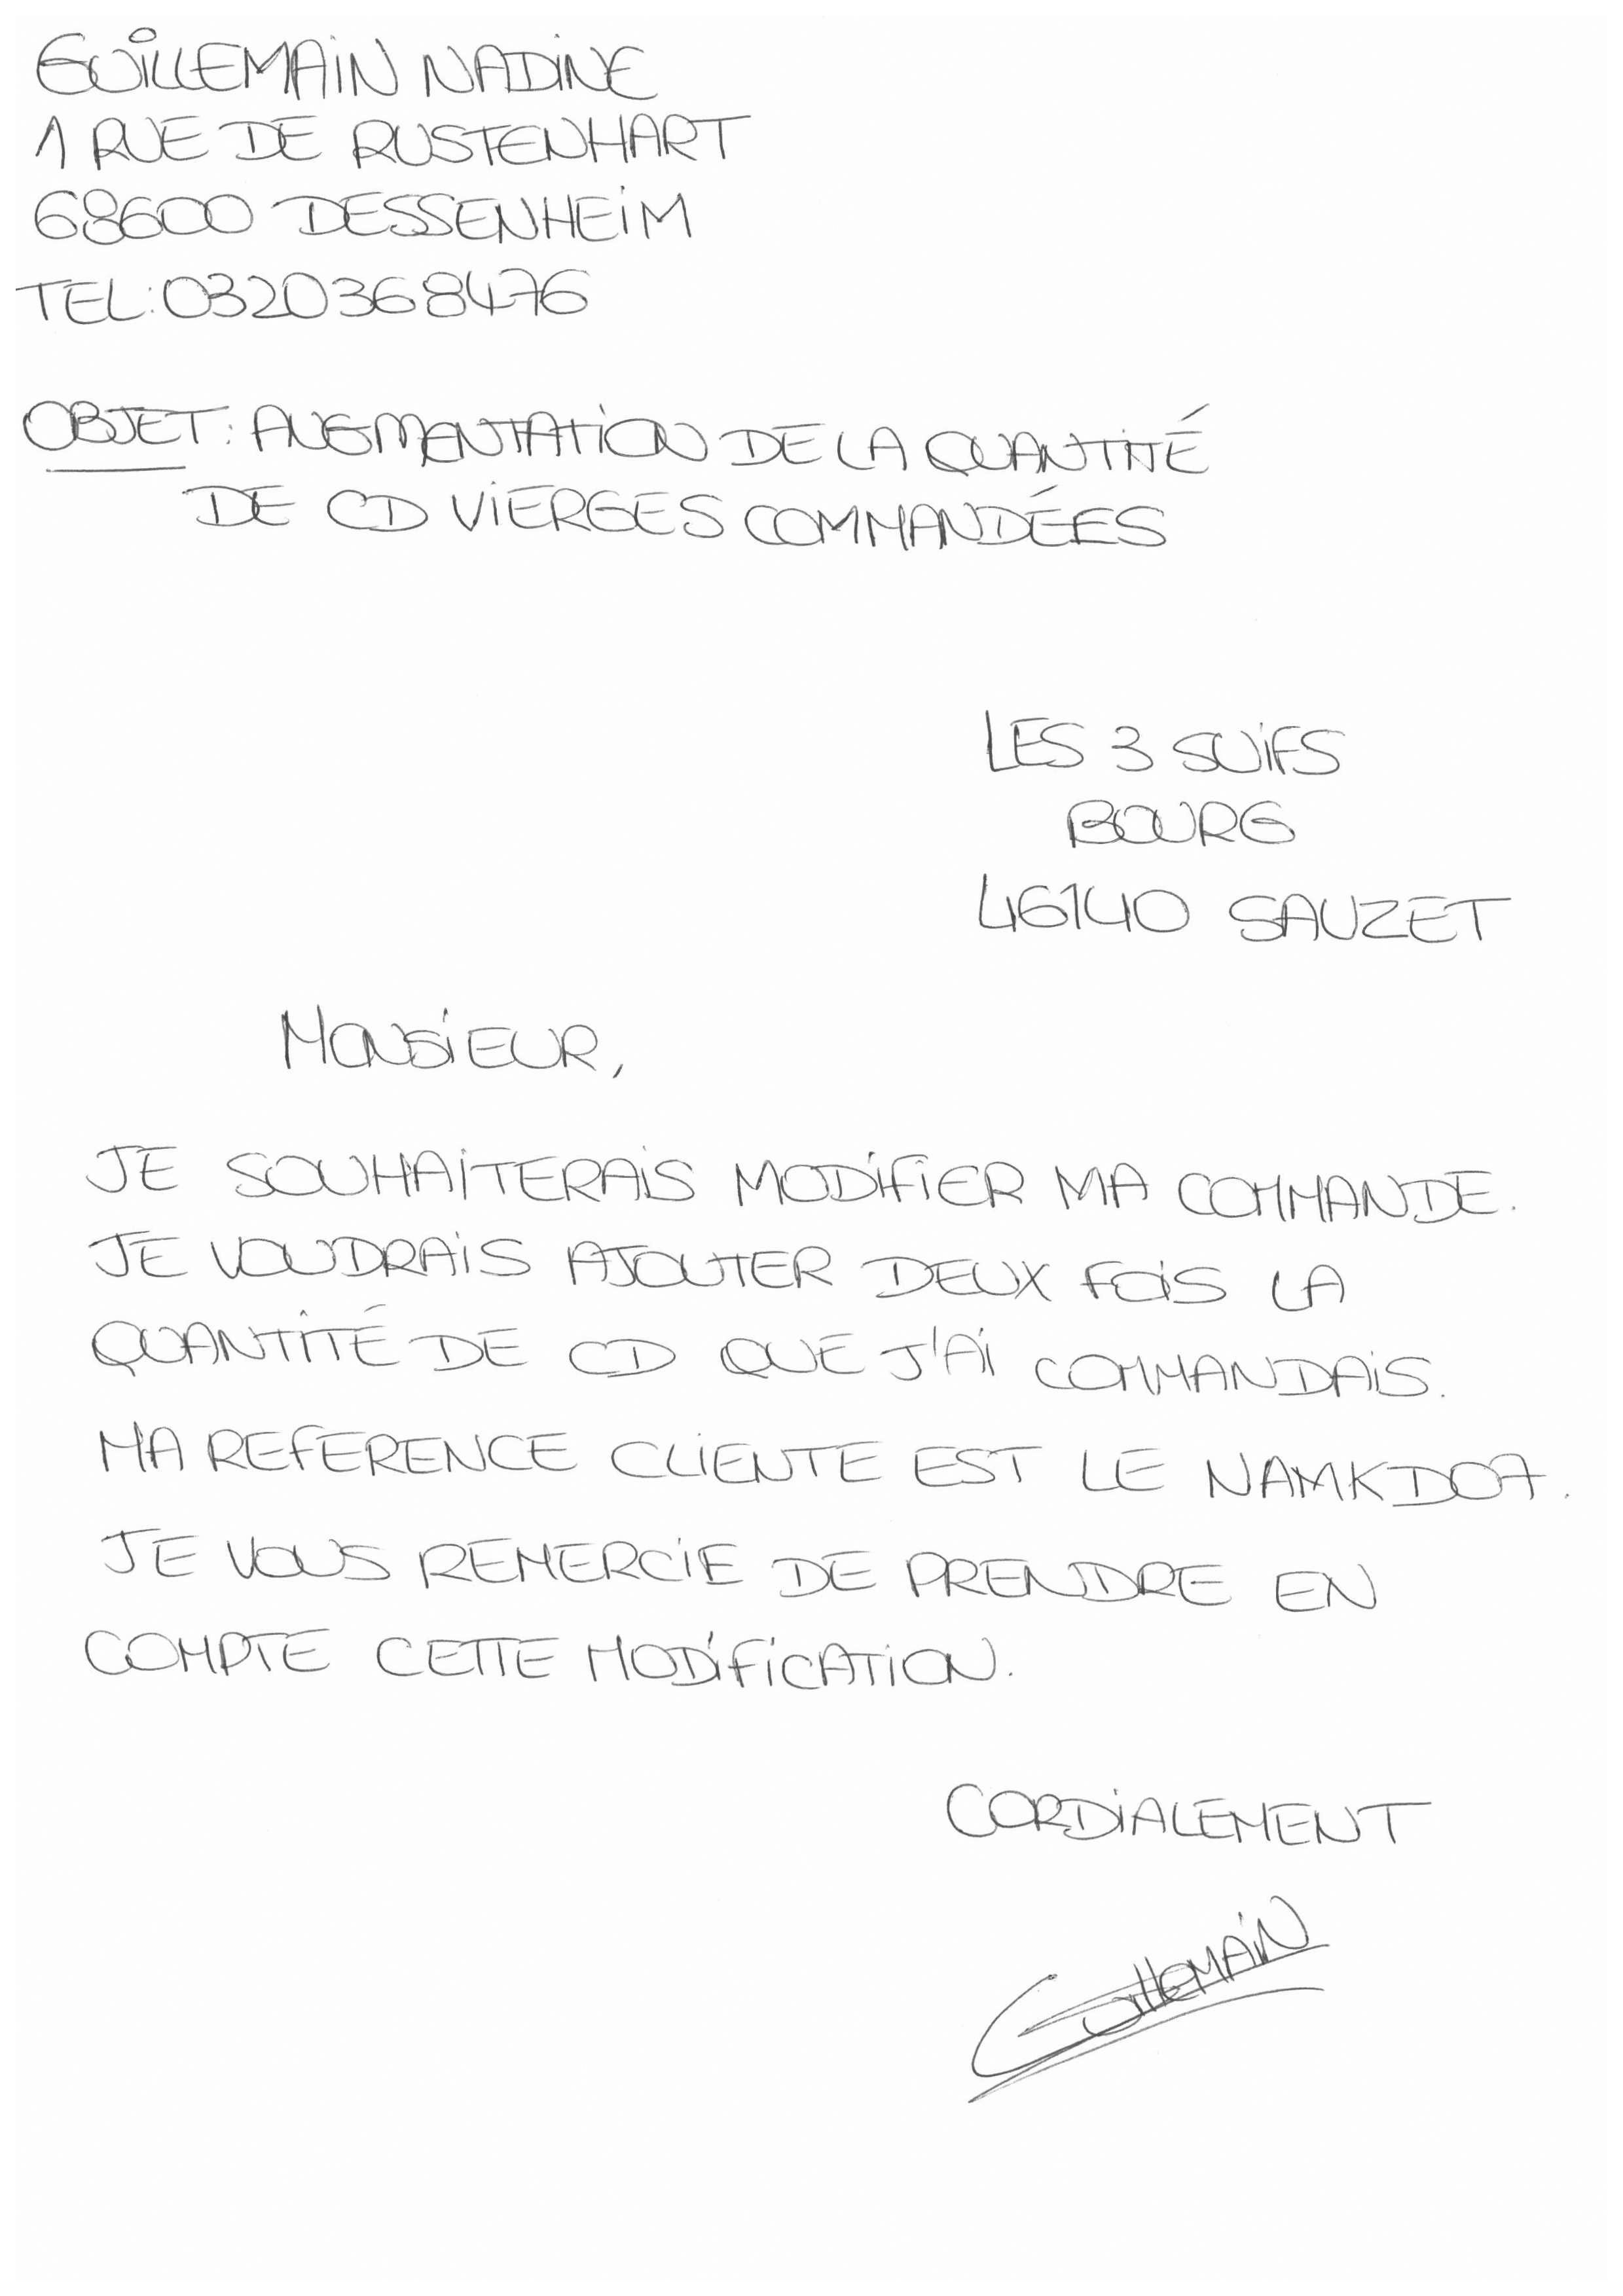 GUILLEMAIN NADINE
1 RUE DE RUSTENHART
68600 DESSENHEIM
TEL:0320368476
OBJET: AUGMENTATION DE LA QUANTITÉ
DE CD VIERGES COMMANDÉES
LES 3 SUIFS
BOURG
46140 SAUZET
MONSIEUR,
JE SOUHAITERAIS MODIFIER MA COMMANDE.
JE VOUDRAIS AJOUTER DEUX FOIS LA
QUANTITÉ DE CD QUE J'AI COMMANDAIS.
MA REFERENCE CLIENTE EST LE NAMKD07.
JE VOUS REMERCIE DE PRENDRE EN
COMPTE CETTE MODIFICATION.
CORDIALEMENT
GUILLEMAIN